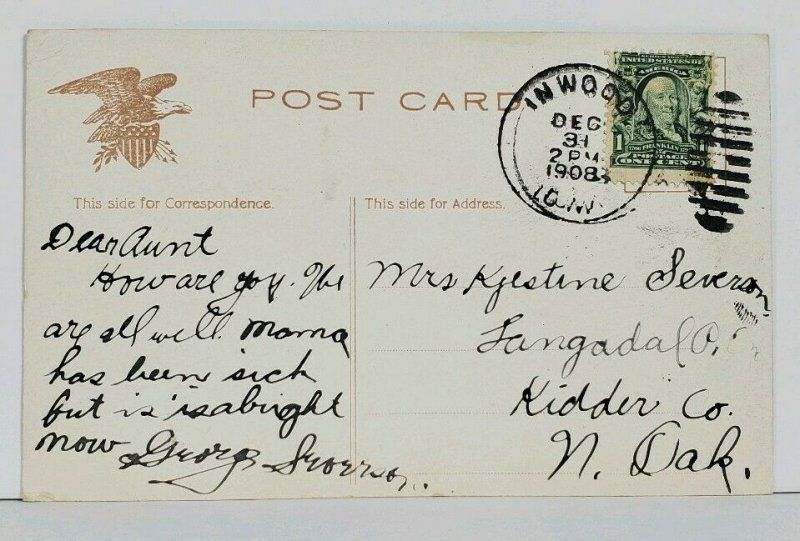 POST CARD
INWOOD
DEC
31
2 PM
1908
IOW
UNITED STATES OF
AMERICA
1 1
FRANKLIN
POSTAGE
ONE CENT
This side for Correspondence.
This side for Address.
Dear Aunt
How are you. We
are all well. Mama
has been sick
but is is albright
now George Severson.
Mrs Kjestine Severson,
Langadal P.
Kidder Co.
N. Dak.